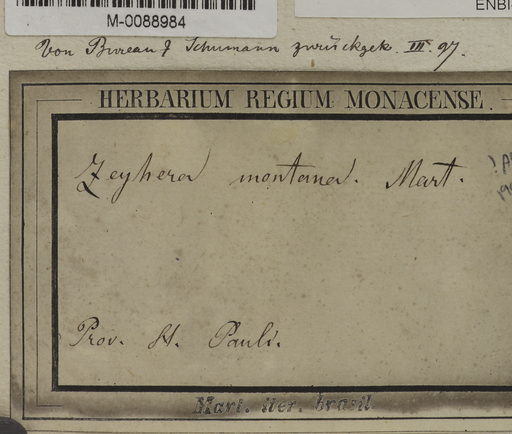 M-0088984
ENBI
Von Bureau & Schumann zurückgek. III. 97.
HERBARIUM REGIUM MONACENSE.
Zeyhera montana. Mart.
Prov. St. Pauli.
Mart. iter. brasil